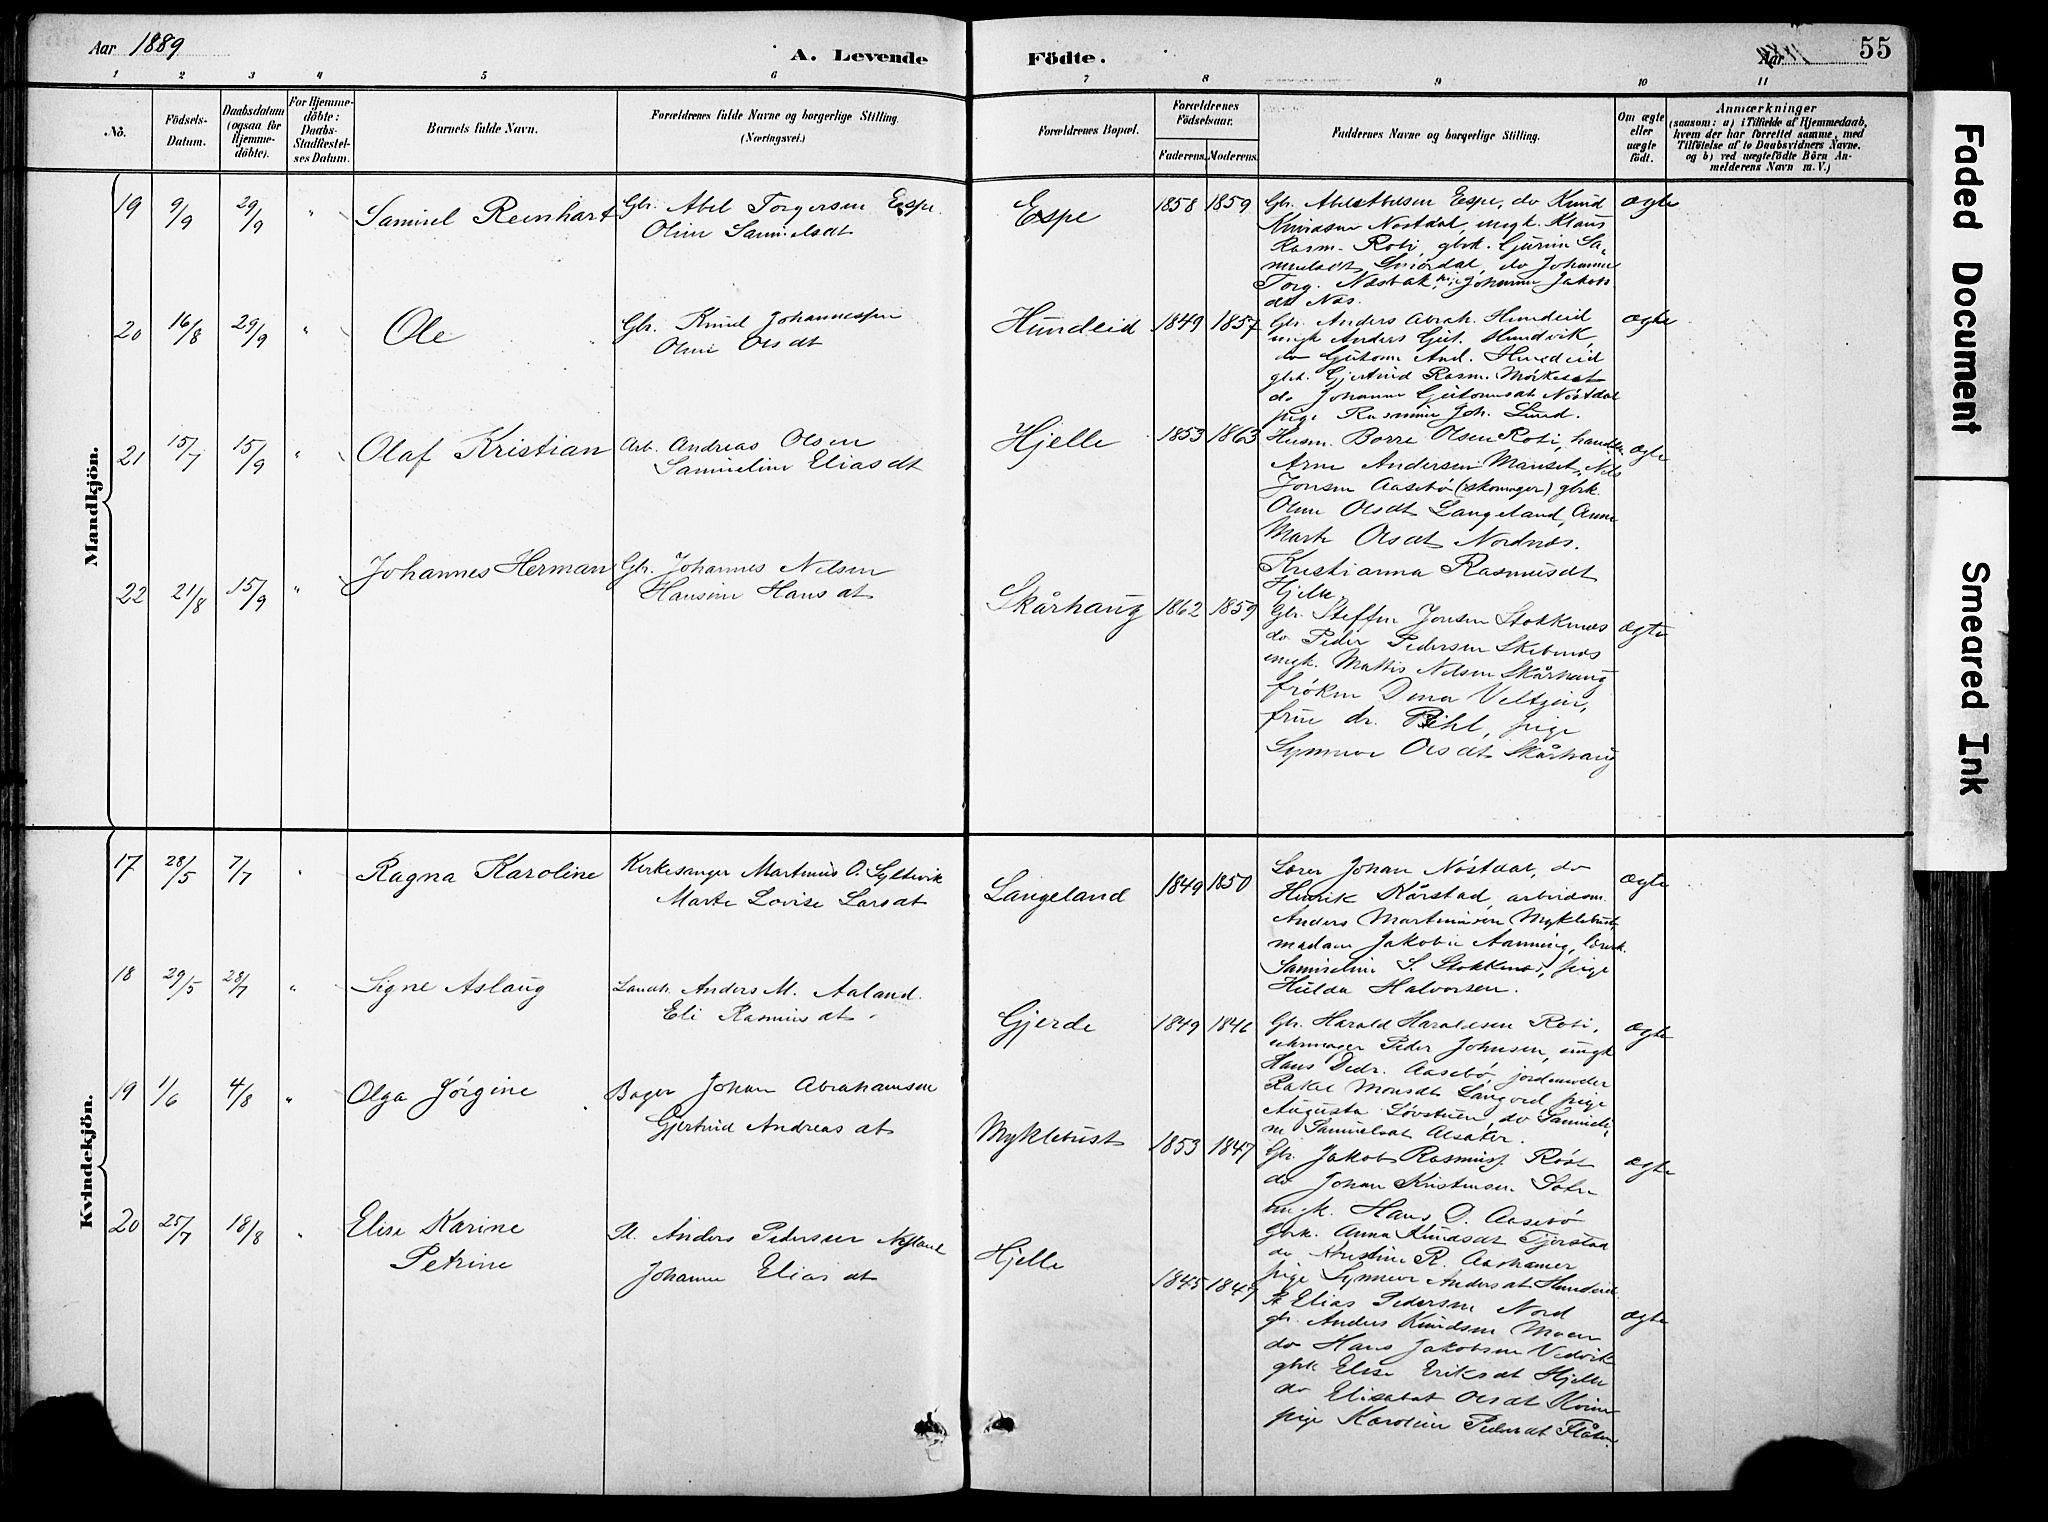 Aar 1889
A. Levende
Födte.
Aar
55
1 2 3 4 5 6 7 8 9 10 11
No.
Födsels-
Datum.
Daabsdatum
(ogsaa for
Hjemme-
döbte).
For Hjemme-
döbte:
Daabs-
Stadfæstel-
ses Datum.
Barnets fulde Navn.
Forældrenes fulde Navne og borgerlige Stilling.
(Næringsvei.)
Forældrenes Bopæl.
Forældrenes
Födselsaar.
Faderens. Moderens.
Faddernes Navne og borgerlige Stilling.
Om ægte
eller
uægte
födt.
Anmærkninger
(saasom: a) i Tilfælde af Hjemmedaab,
hvem der har forrettet samme, med
Tilföielse af to Daabsvidners Navne.
og b) ved uægtefödte Börn An-
melderens Navn m. V.)
Mandkjön.
19 9/9 29/9 " Samuel Reinhart
Gbr. Abel Torgersen Espe.
Oline Samuelsdt
Espe 1858 1859
Gbr. Abel Abelsen Espe, do Knud
Knudsen Nöstdal, ungk. Klaus
Rasm. Roti, gbrk. Gurine Sa-
muelsdt Smördal, do Johanne
Torg. Næsbak, pige Johanne Jakobs
dt Nes.
ægte
20 16/8 29/9 " Ole
Gbr. Knud Johannessen
Oline Olsdt
Hundeid 1849 1857
Gbr. Anders Abrah. Hundeid
ungk Anders Gut. Hundvik,
do Gutorm And. Hundeid
gbrk. Gjertrud Rasm. Mörkeset
do Johanne Gutormsdt Nöstdal
pige Rasmine Joh. Lund.
ægte
21 15/7 15/9 " Olaf Kristian
Arb. Andreas Olsen
Samueline Eliasdt
Hjelle 1853 1863
Husm. Borre Olsen Roti, handler
Arne Andersen Manset, Nils
Jonsen Aasebö (skomager) gbrk.
Oline Olsdt Langeland, Anne
Marte Olsdt Nordnes.
Kristianna Rasmusdt
Hjelle.
ægte
22 21/8 15/9 " Johannes Herman
Gbr. Johannes Nilsen
Hansine Hansdt
Skårhaug 1862 1859
Gbr. Steffen Jonsen Stokknes
do Peder Pedersen Skibenes
ungk. Mattis Nilsen Skårhaug
fröken Dina Veltzin,
frue dr. Pihl, pige
Synneve Olsdt Skårhaug
ægte
Kvindekjön.
17 28/5 7/7 Ragna Karoline
Kirkesanger Martinus O. Syltevik
Marte Lovise Larsdt
Langeland 1849 1850
Lærer Johan Nöstdal, do
Henrik Kårstad, arbeidsm.
Anders Martinusen Myklebust,
madam Jakobie Aanning, lærerk.
Samueline S. Stokknes, pige
Hulda Halvorsen.
ægte
18 29/5 28/7 " Signe Aslaug
Landh. Anders M. Aaland.
Eli Rasmusdt
Gjerde 1849 1846
Gbr. Harald Haraldsen Roti,
uhrmager Peder Johnsen, ungk
Hans Didr. Aasebö, jordemoder
Rakel Monsdt Langved pige
Augusta Lövstuen, do Samueli-
ne Samuelsdt Alsaker.
ægte
19 1/6 4/8 " Olga Jörgine
Bager Johan Abrahamsen
Gjertrud Andreasdt
Myklebust 1853 1847
Gbr. Jakob Rasmuss. Röst
do Johan Kristensen
ungk. Hans D. Aasebö
gbrk. Anna Knudsdt Tjerstad
do Kristine R. Aashamer
pige Synneve Andersdt Hundeid
ægte
20 25/7 18/8 " Elise Karine
Petrine
Pl. Anders Pedersen
Johanne Eliasdt
Hjelle 1845 1847
Pl Elias Pedersen Nord
gbr. Anders Knudsen Moen
do Hans Jakobsen Vedvik
gbrk Elise Eriksdt Hjelle
do Elisabet Olsdt
pige Karoline Pedersdt Flåten.
ægte
Faded Document
Smeared Ink